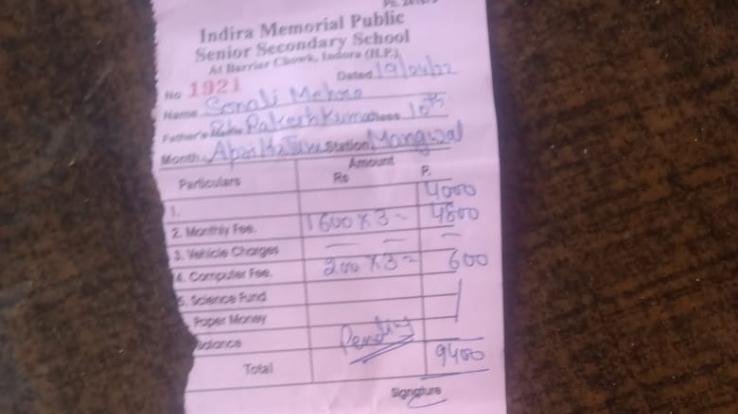 Indira Memorial Public
Senior Secondary School
At Barrier Chowk, Indora (H.P.)
Dated 19/04/22
No 1921
Name Sonali Mehra
Father's Name Sh. Rakesh Kumar Class 10th
Month April to June Station Mangwal
Particulars Amount
Rs P.
1. 4000
2. Monthly Fee. 1600 x 3 = 4800
3. Vehicle Charges — — —
4. Computer Fee. 200 x 3 = 600
5. Science Fund
Paper Money
Balance Pending
Total 9400
Signature